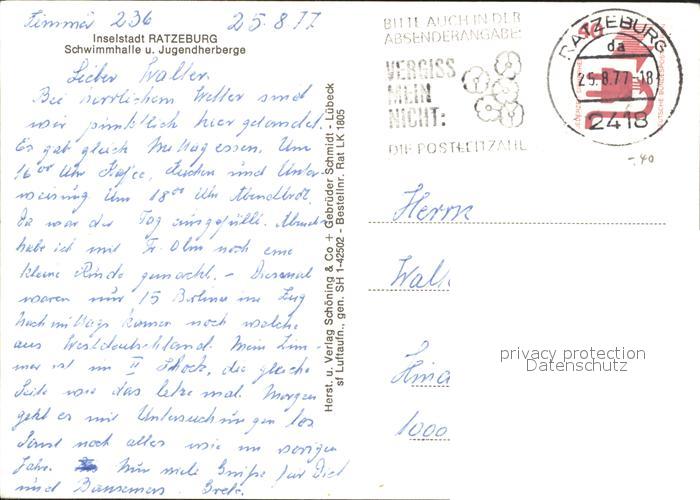 Zimmer 236 25.8.77
Inselstadt RATZEBURG
Schwimmhalle u. Jugendherberge
Lieber Walter.
Bei herrlichem Wetter sind
wir pünktlich hier gelandet.
Es gab gleich Mittagessen. Um
16⁰⁰ Uhr Kaffee, Kuchen und Unter-
weisung Um 18⁰⁰ Uhr Abendbrot.
Da war der Tag ausgefüllt. Abends
habe ich mit Fr. Olm noch eine
kleine Runde gemacht. - Diesmal
waren nur 15 Berliner im Zug
Nachmittags kamen noch welche
aus Westdeutschland. Mein Zim-
mer ist im II Stock, die gleiche
Seite wie das letze mal. Morgen
geht es mit Untersuchungen los
Sonst noch alles wie im vorigen
Jahr. Nun viele Grüße für Dich
und Grete.
Herst. u. Verlag Schöning & Co + Gebrüder Schmidt - Lübeck
sf Luftaufn., gen. SH 1-42502 - Bestellnr. Rat LK 1805
BITTE AUCH IN DER
ABSENDERANGABE:
VERGISS
MEIN
NICHT:
DIE POSTLEITZAHL
RATZEBURG
da
25.8.77-18
2418
DEUTSCHE BUNDESPOST
-,40
Herrn
Walt
1000
privacy protection
Datenschutz